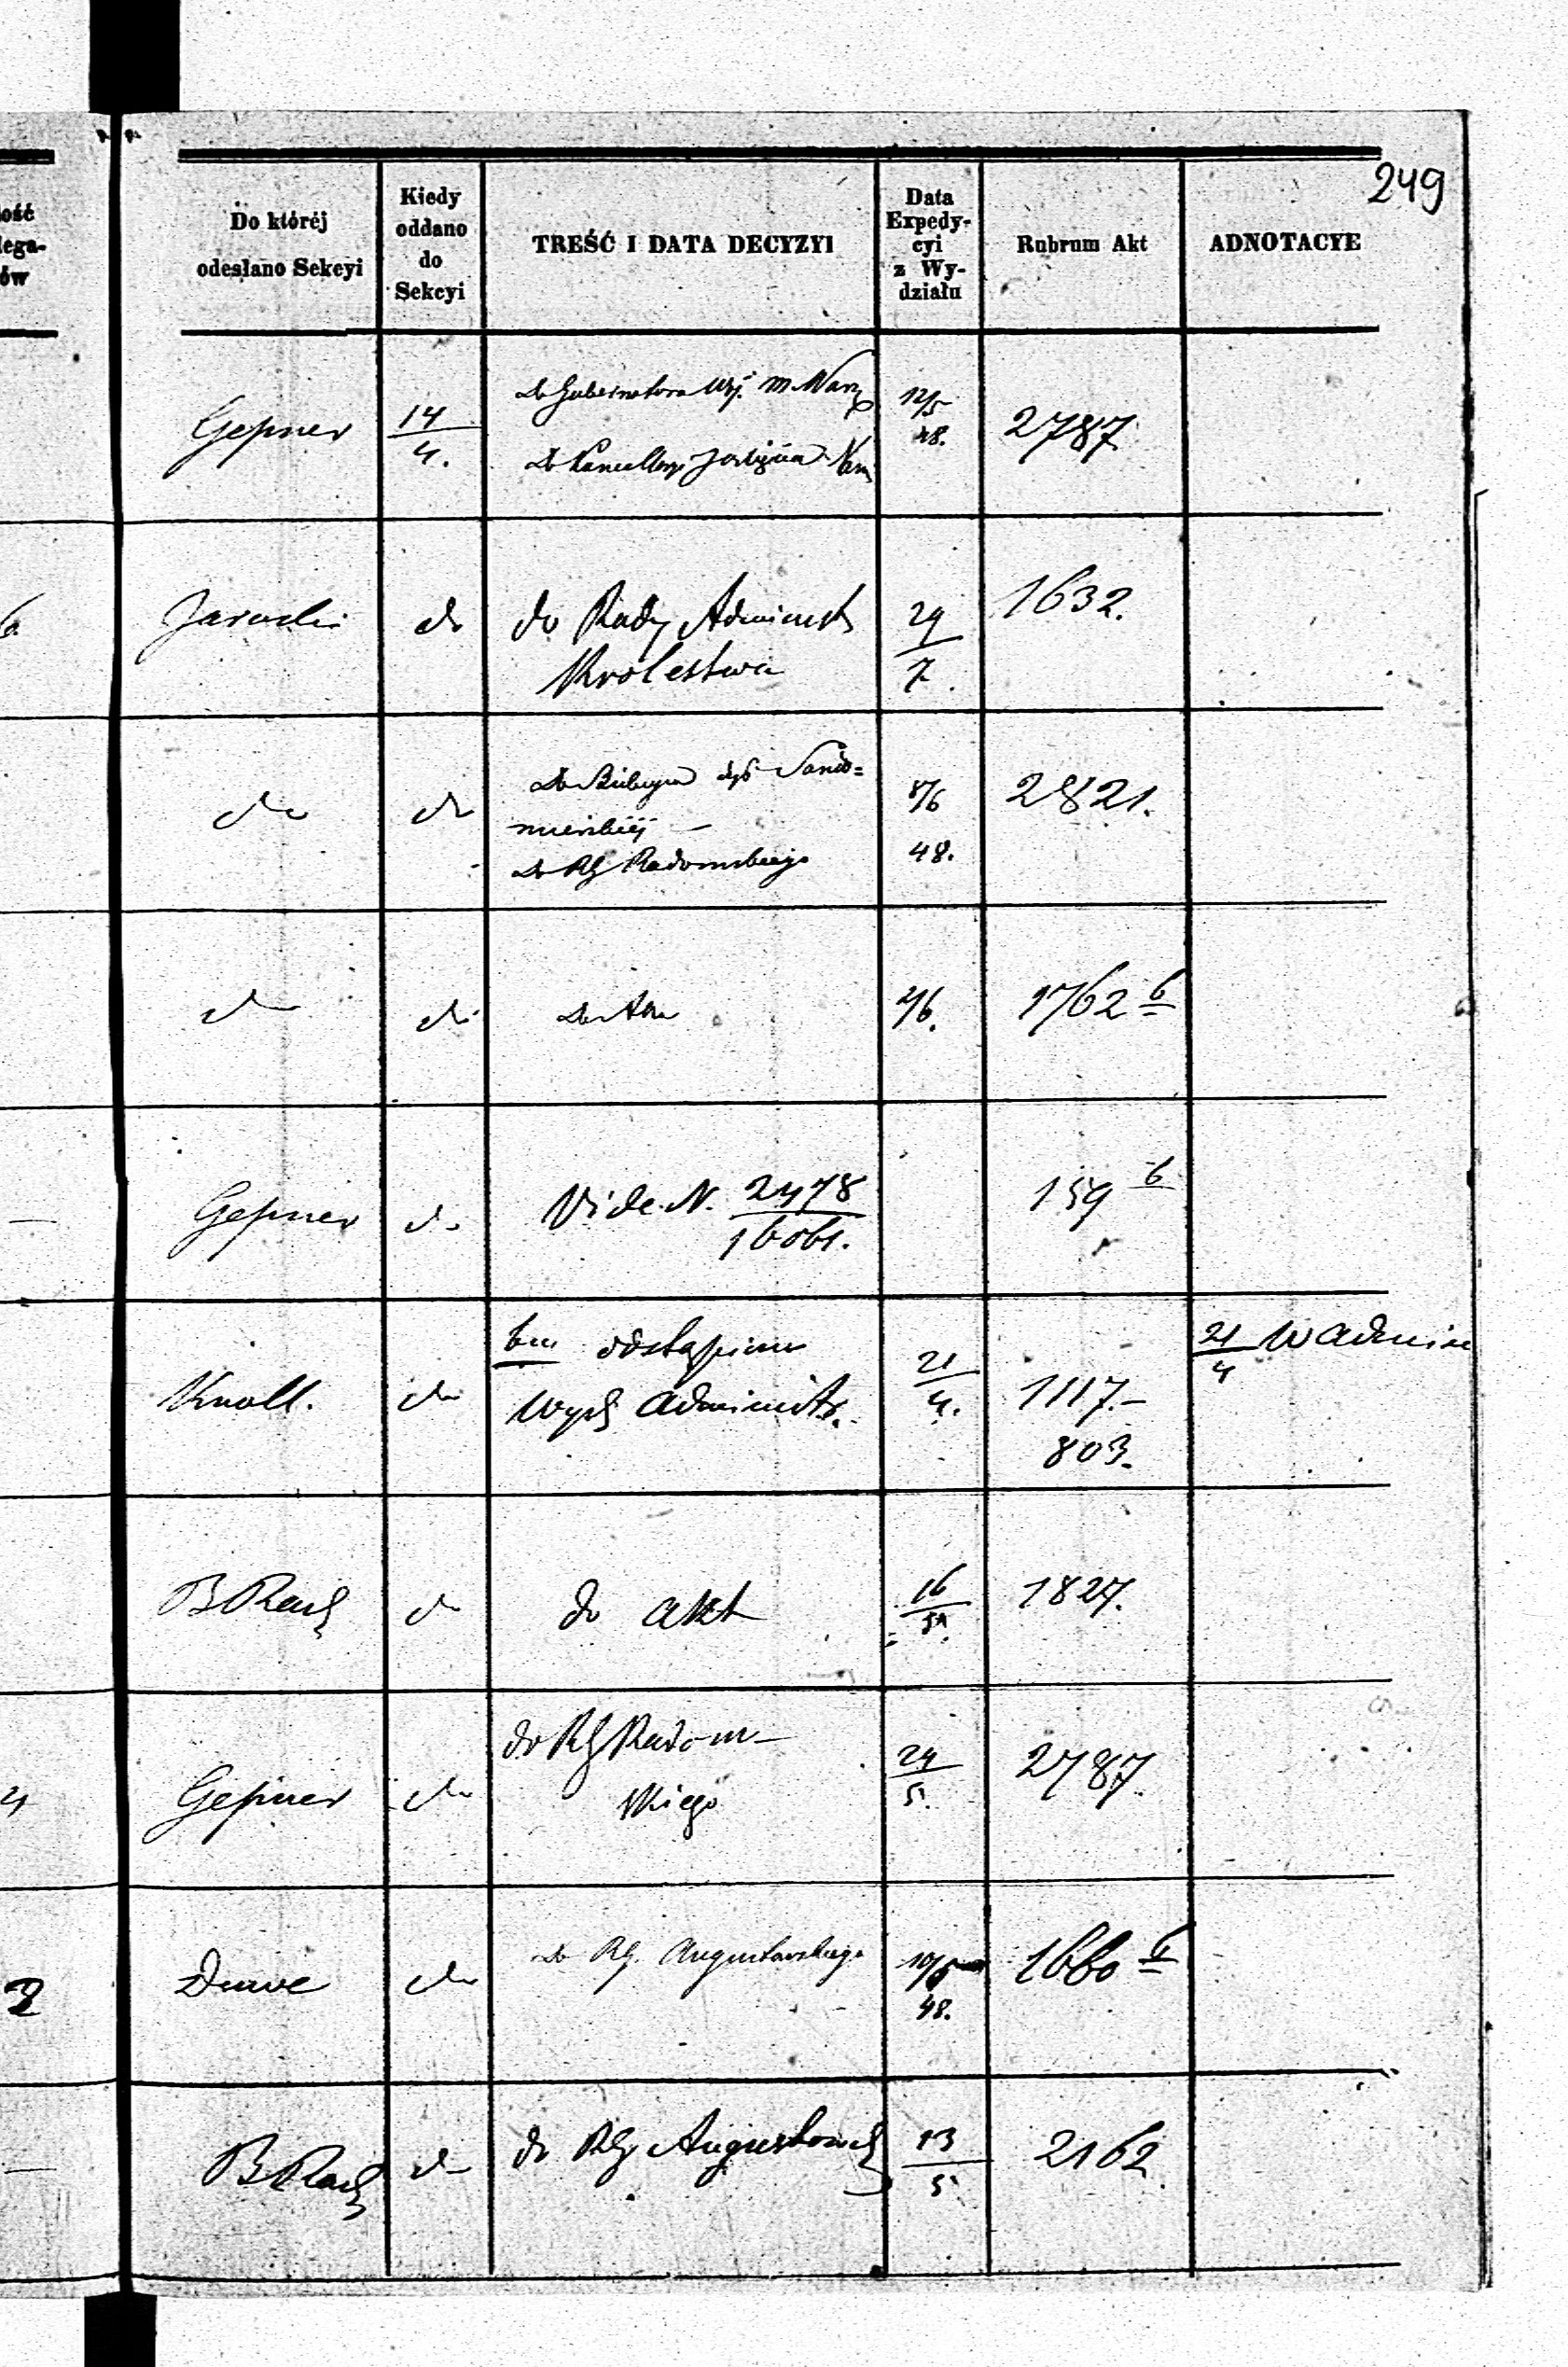 249
ość
lega-
ów
Do któréj
odesłano Sekcyi
Kiedy
oddano
do
Sekcyi
TREŚĆ I DATA DECYZYI
Data
Expedy-
cyi
z Wy-
działu
Rubrum Akt
ADNOTACYE
Gepner
14/4.
Do Gubernatora Woj. m. Warsz
Do Kancellaryi
12/5 48.
2787.
do
do Rady Administ
Krolestwa
29/7.
1632.
do
do
Do Biskupa dyec Sando=
mierskiéj —
Do RG Radomskiego
8/6
48.
2821.
do
do
Do Akt
2/6.
1762 b
Gepner
do
Vide N. 2478/16061.
159 b
Knoll.
do
odstąpiono
Wydz Administr.
21/4.
1117.–
803.
21/4 W Admin
B Rach
do
do akt
16/5.
1827.
4
Gepner
do
do RG Radom–
skiego
24/5.
2787.
2
Durve
do
do RG. Augustowskiego
10/5
48.
1660 b
B Rach
do
do RG Augustowsk
13/5
2162